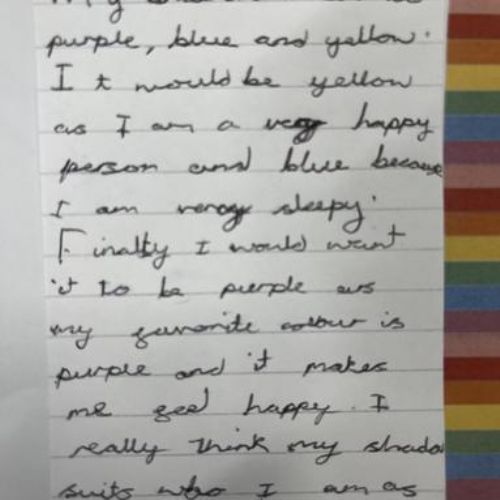 My
purple, blue and yellow.
It would be yellow
as I am a very happy
person and blue because
I am veray sleepy.
Finally I would want
it to be purple as
my favorite colour is
purple and it makes
me feel happy. I
really think my shado
suits who I am as